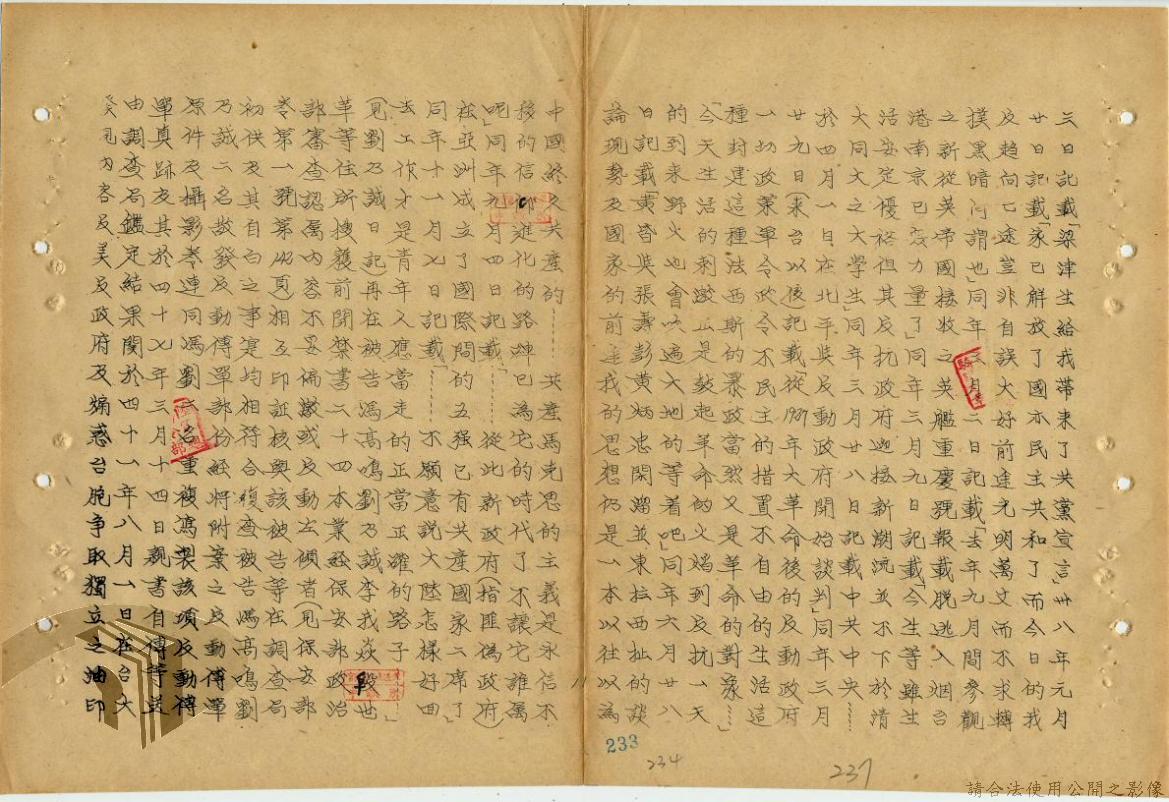 三日記載「梁津生給我帶來了共黨宣言」卅八年元月
廿日記載家已解放了國亦民主共和了而今日的我
反趨向亡途豈非自誤大好前途光明萬丈而不求轉
撲黑暗何謂也」同年三月二日記載「去年九月間參觀
之新從英帝國接收之英艦重慶號報載脫逃入烟台
港南京已無力量了」同年三月九日記載「今生等雖生
活安定優裕但其反抗政府迎接新潮流並不下於清
大同文之大學生」同年三月廿八日記載中共中央……
於四月一日在北平與反動政府開始談判」同年三月
廿九日(來台以後記載從1927年大革命後的反動政府
一切政策軍令政令不民主的措置不自由的生活這
種封建這種法西斯的暴政當然又是革命的對象……」
「今天生活的刺激正是鼓起革命的火焰到反抗一天
的到來野火也會吠遍大地的等着吧」同年六月廿八
日記載「夷皆與張壽彭黃炳忠閑溜並東拉西扯的談
論現勢及國家的前途我的思想仍是一本以往以為
中國終久共產的……共產馬克思的主義是永信不
移的信仰進化的路陣已為它的時代了不讓它誰屬
呢」同年九月四日記載「……從此新政府(指匪偽政府)
在亞洲成立了國際間的五强已有共產國家二席了
同年十一月七日記載「……不願意說大陸怎樣好回
去工作才是青年人應當走的正當正確的路子……」
(見劉乃誠日記再在被告馮高鳴劉乃誠李我焱殷也
革等住所搜獲前開禁書二十四本業經保安部政治
部審查認屬內容不妥偏激或反動左傾者(見保安部
卷第一號第142頁相互印証核與該被告等在調查局
初供及其自白之事寔均相符合復查被告馮高鳴劉
乃誠二名散發反動傳單部份經將附案之反動傳單
原件及攝影卷連同馮劉二名重複寫製該項反動傳
單真跡及其於四十七年三月十四日親書自傳等送
由調查局鑑定結果関於四十一年八月一日在台大
発見內容反美反政府及煽惑台胞爭取獨立之油印
233
234
237
請合法使用公開之影像